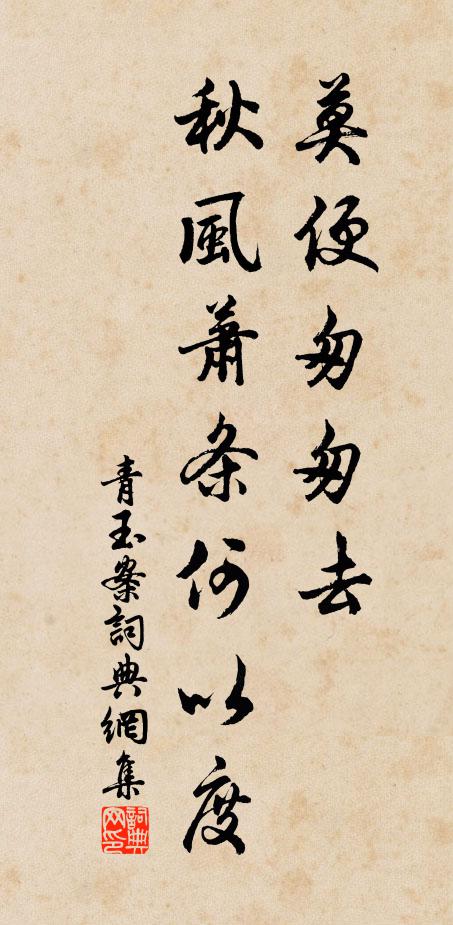 莫便匆匆去
秋風蕭条何以度
青玉案詞典網集
詞典网印